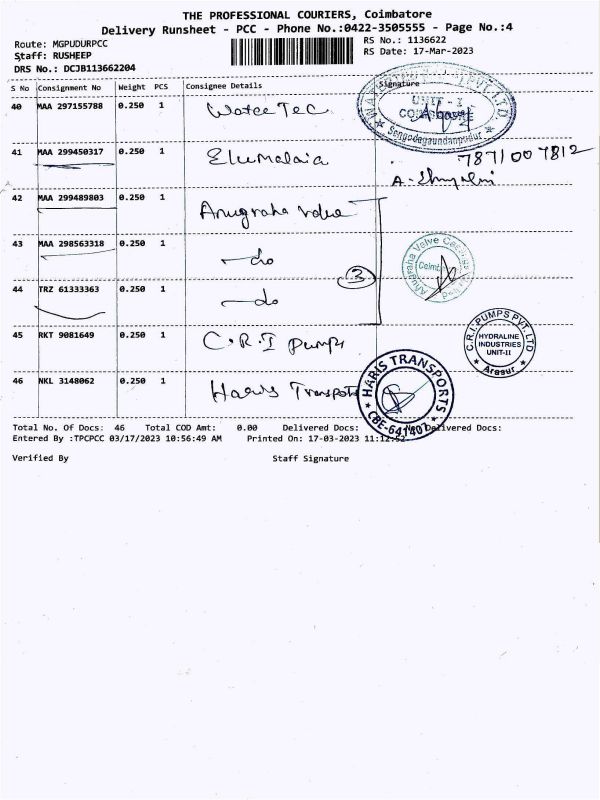 THE PROFESSIONAL COURIERS, Coimbatore
Delivery Runsheet - PCC - Phone No.:0422-3505555 - Page No.:4
Route: MGPUDURPCC
RS No.: 1136622
Staff: RUSHEEP
RS Date: 17-Mar-2023
DRS No.: DCJB113662204
S No Consignment No Weight PCS Consignee Details Signature
40 MAA 297155788 0.250 1 Watce Tec
UNIT - I
Sengodagoundanpudur
41 MAA 299450317 0.250 1 Elumalaia
7871007812
42 MAA 299489803 0.250 1 Anugraha valve
43 MAA 298563318 0.250 1 -do
Anugraha Valve Castings
3
44 TRZ 61333363 0.250 1 -do
45 RKT 9081649 0.250 1 C.R.I pumps
C.R.I.PUMPS PVT.LTD
HYDRALINE
INDUSTRIES
UNIT-II
Arasur
46 NKL 3148062 0.250 1 Haris Transpots
HARIS TRANSPORTS
CBE-641407
Total No. Of Docs: 46 Total COD Amt: 0.00 Delivered Docs: Delivered Docs:
Entered By :TPCPCC 03/17/2023 10:56:49 AM Printed On: 17-03-2023 11:12:52
Verified By Staff Signature